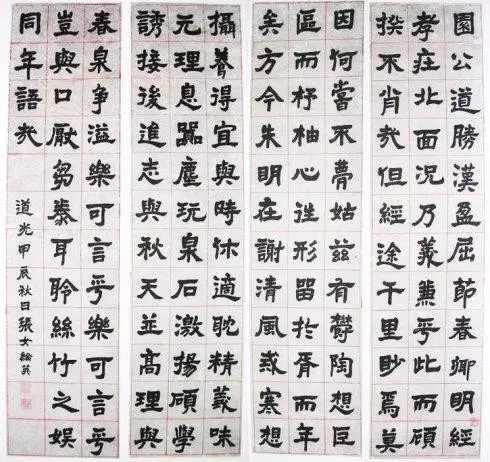 園公道勝漢盈屈節春卿明經
孝莊北面況乃義兼乎此而顧
揆不肖哉但經途千里眇焉莫
因何當不夢姑茲有鬱陶想臣
區而杼柚心往形留於胥而年
矣方今朱明在謝清風戒寒想
攝養得宜與時休適耽精義味
元理息囂塵玩泉石激揚碩學
誘接後進志與秋天並高理與
春泉爭溢樂可言乎樂可言乎
豈與口厭芻豢耳聆絲竹之娛
同年語哉
道光甲辰秋日張女綸英